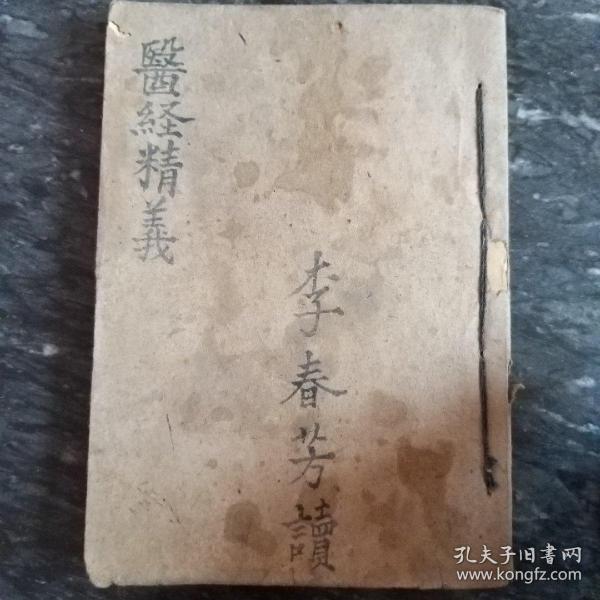 醫経精義
李春芳讀
孔夫子旧书网
www.kongfz.com